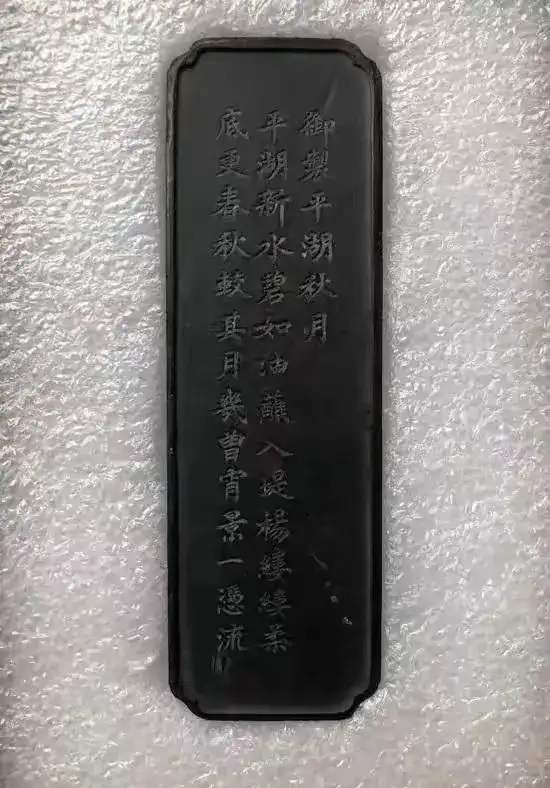 御製平湖秋月
平湖新水碧如油蘸入堤楊縷縷柔
底更春秋較其月幾曾霄景一憑流